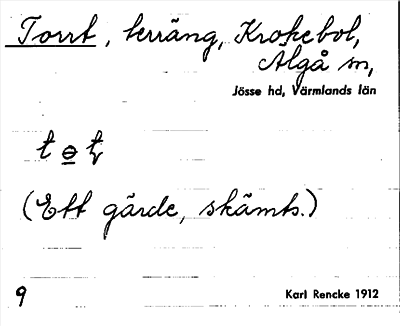 Torrt, terräng, Krokebol,
Älgå sn,
Jösse hd, Värmlands län
(Ett gärde, skämts.)
9
Karl Rencke 1912